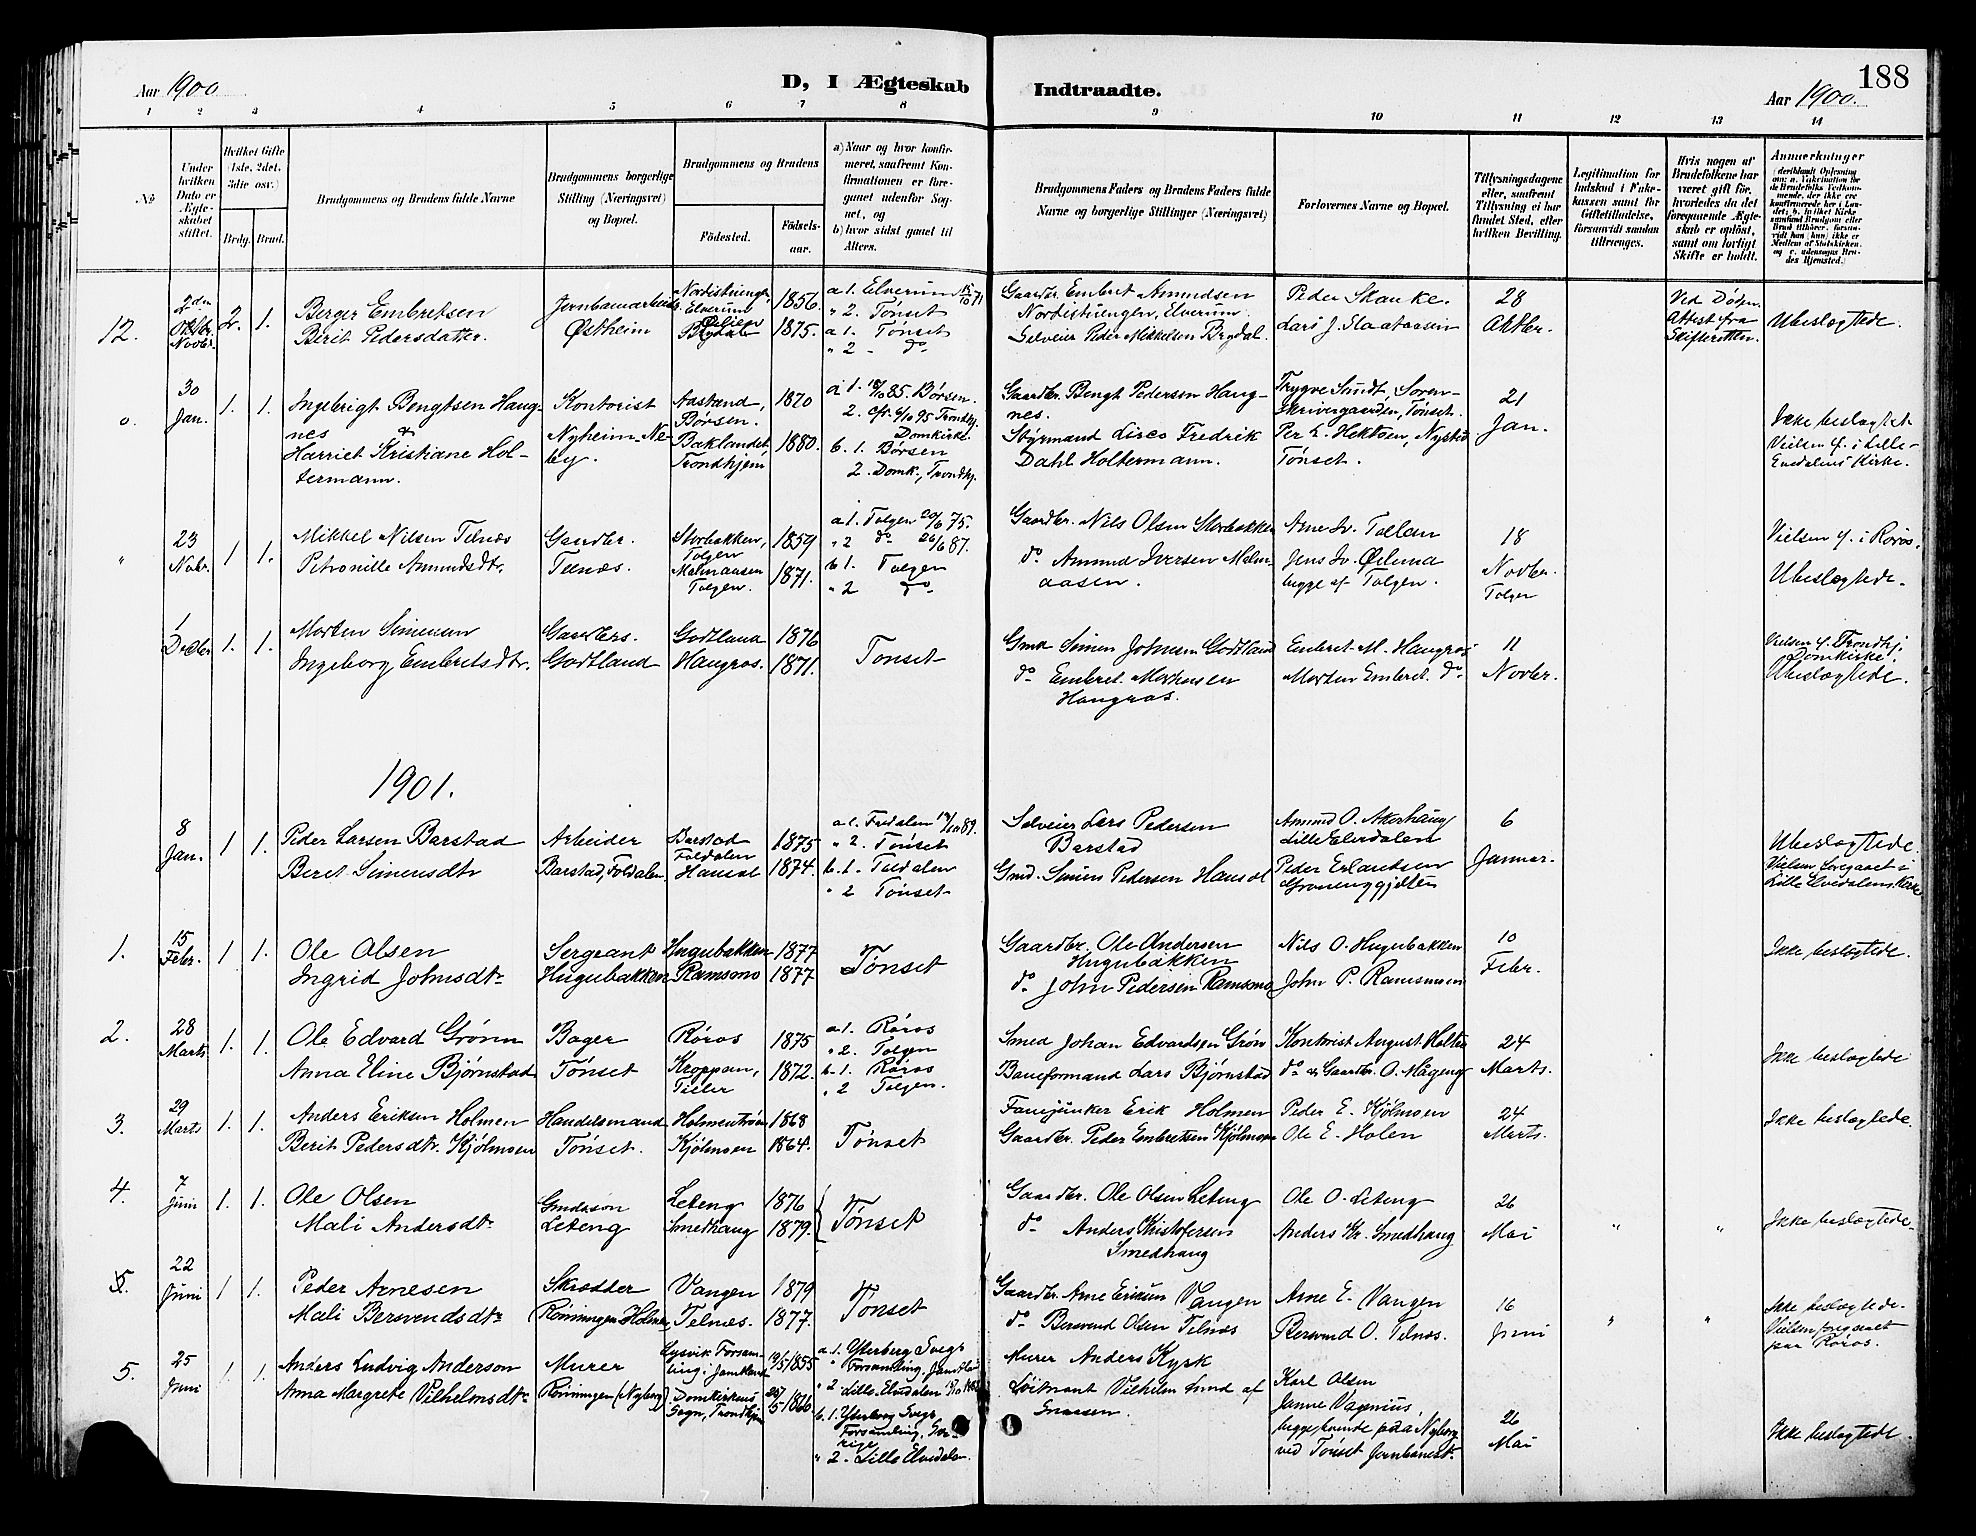 188
Aar 1900
D, I Ægteskab Indtraadte.
Aar 1900.
1 2 3 4 5 6 7 8 9 10 11 12 13 14
No
Under hvilken Dato er Ægteskabet stiftet.
Hvilket Gifte (1ste, 2det, 3die osv.)
Brdg. Brud.
Brudgommens og Brudens fulde Navne
Brudgommens borgerlige Stilling (Næringsvei) og Bopæl.
Brudgommens og Brudens
Fødested.
Fødselsaar.
a) Naar og hvor konfirmeret, saafremt Konfirmationen er foregaaet udenfor Sognet, og
b) hvor sidst gaaet til Alters.
Brudgommens Faders og Brudens Faders fulde Navne og borgerlige Stillinger (Næringsvei)
Forlovernes Navne og Bopæl.
Tillysningsdagene eller, saafremt Tillysning ei har fundet Sted, efter hvilken Bevilling.
Legitimation for Indskud i Enkekassen samt for Giftetilladelse, forsaavidt saadan tiltrænges.
Hvis nogen af Brudefolkene har været gift før, hvorledes da det foregaaende Ægteskab er opløst, samt om lovligt Skifte er holdt.
Anmærkninger
12.
2den
Novbr.
2. 1.
Berger Embretsen
Berit Pedersdatter.
Jernbanearbeider
Østheim
Elverum
1856.
1875.
a 1. Elverum 15/10 71
" 2. Tønset
a 1. Tønset
" 2 - do
Gaardbr. Embret Amundsen
Nordistuengen, Elverum.
Selveier Peder Mikkelsen Brydal.
Peder Skanke.
Lars J. Slaataasen
28
Oktbr.
Ved Døds.
Attest fra
Skifteretten.
Ubeslægtede.
0.
30
Jan.
1. 1.
Ingebrigt Bengtsen Haugnes
&
Harriet Kristiane Holtermann.
Kontorist
Nyheim, Neby.
Aastand,
Børsen.
Baklandet,
Trondhjem
1870
1880.
a 1. 18/10 85. Børsen.
2. cfr. 6/10 95 Trondhj.
Domkirke.
b. 1. Børsen
2. Domk., Trondhj.
Gaardbr. Bengt Pedersen Haugnes.
Styrmand Lisco Fredrik
Dahl Holtermann.
Trygve Smidt, Sorenskrivergaarden, Tønset.
Per L. Hektoen, Nystu
Tønset.
21
Jan.
Ikke beslægtet
Vielsen f. i Lille-
Elvedalens Kirke.
"
23
Nobr.
1 1.
Mikkel Nilsen Telnæs
Petronille Amundsdtr.
Gaardbr.
Telnæs.
Storbakken,
Tolgen
Malmaasen
Tolgen.
1859
1871.
a 1. Tolgen 20/6 75.
" 2 do 26/6 87.
b 1. Tolgen
" 2 do
Gaardbr. Nils Olsen Storbakken
do Amund Iversen Malmaasen.
Arne Iv. Tollan
Jens Iv. Øverna
begge af Tolgen.
18
Novbr.
Tolgen
Vielsen f. i Røros.
Ubeslægtede.
1
Decbr
1. 1.
Morten Simensen
Ingeborg Embretsdtr.
Gaardbrs.
Godtland
Godtland
Haugros.
1876
1871.
Tønset
Gmd Simen Johnsen Godtland
do Embret Mortensen
Haugros.
Embret M. Haugros
Morten Embret. do
11
Novbr.
Vielsen f. Trondhj.
Domkirke.
Ubeslægtede.
1901.
8
Jan.
1 1.
Peder Larsen Barstad
Beret Simensdtr
Arbeider
Barstad, Foldalen.
Barstad
Foldalen
Hausæt
1875
1874.
a 1. Foldalen 89.
" 2. Tønset
b. 1. Foldalen
" 2 Tønset
Selveier Lars Pedersen
Barstad
Gmd. Simen Pedersen Hausæt
Amund O. Atterhaug
Lille Elvedalen
Peder Erlandsen
6
Januar.
Ubeslægtede.
Vielsen foregaaet i
Lille Elvedalens Kirke
1.
15
Febr.
1 1.
Ole Olsen
Ingrid Johnsdtr
Sergeant
Hugubakken
Hugubakken
Ramsmo
1877
1877
Tønset
Gaardbr. Ole Andersen
Hugubakken
do John Pedersen Ramsmo
Nils O. Hugubakken
John P. Ramsmoen
10
Febr.
Ikke beslægtede.
2.
28
Marts
1. 1.
Ole Edvard Grønn
Anna Eline Bjørnstad
Bager
Tønset
Røros
Kroppan,
Tiller
1875
1872.
a 1. Røros
" 2. Tolgen
b 1. Røros
" 2 Tolgen.
Smed Johan Edvardsen Grøn
Baneformand Lars Bjørnstad
Kontorist August Holter
do & Gaardbr. O. Mageng
24
Marts.
Ikke beslægtede
3.
29
Marts
1. 1.
Anders Eriksen Holmen
Berit Pedersdtr. Kjølmoen
Handelsmand
Tønset.
Holmentrøen
Kjølmoen
1868
1864.
Tønset
Fanejunker Erik Holmen
Gaardbr. Peder Embretsen Kjølmoen
Peder E. Kjølmoen
Ole E. Holen
24
Marts.
Ikke beslægtede.
4.
7
Juni
1. 1.
Ole Olsen
Mali Andersdtr
Gmdssøn
Leteng
Leteng
Smedhaug
1876
1879.
Tønset
Gaardbr. Ole Olsen Leteng
do Anders Kristofersen
Smedhaug
Ole O. Leteng
Anders Kr. Smedhaug
26
Mai
" "
Ikke beslægtede.
5.
22
Juni
1 1.
Peder Arnesen
Mali Bersvendsdtr
Skrædder
Rønningen Holmen
Vangen
Telnes.
1879
1877.
Tønset
Gaardbr. Arne Eriksen Vangen
do Bersvend Olsen Telnæs
Arne E. Vangen
Bersvend O. Telnæs.
16
Juni
" "
Ikke beslægtede.
Vielsen foregaaet
paa Røros.
5.
25
Juni
1. 1.
Anders Ludvig Anderson
Anna Margrete Vilhelmsdtr
Murer
Rønningen (Nyberg)
Lysvik Forsamling i Jemtland
Domkirkens
Sogn, Trondhjem
1855
1860.
a. 1. Ytterberg Svegs
Forsamling, Jemtland
" 2 Lille Elvedalen
b. 1. Ytterberg Svegs
Forsamling, Sverige
" 2. Lille Elvedalen.
Murer Anders Kysk
Løitnant Vilhelm Lund af
Snaasen.
Karl Olsen
Janne Vagenius,
begge boende paa Nyberg
ved Tønset Jernbanest.
26
Mai
Ikke beslægtede.